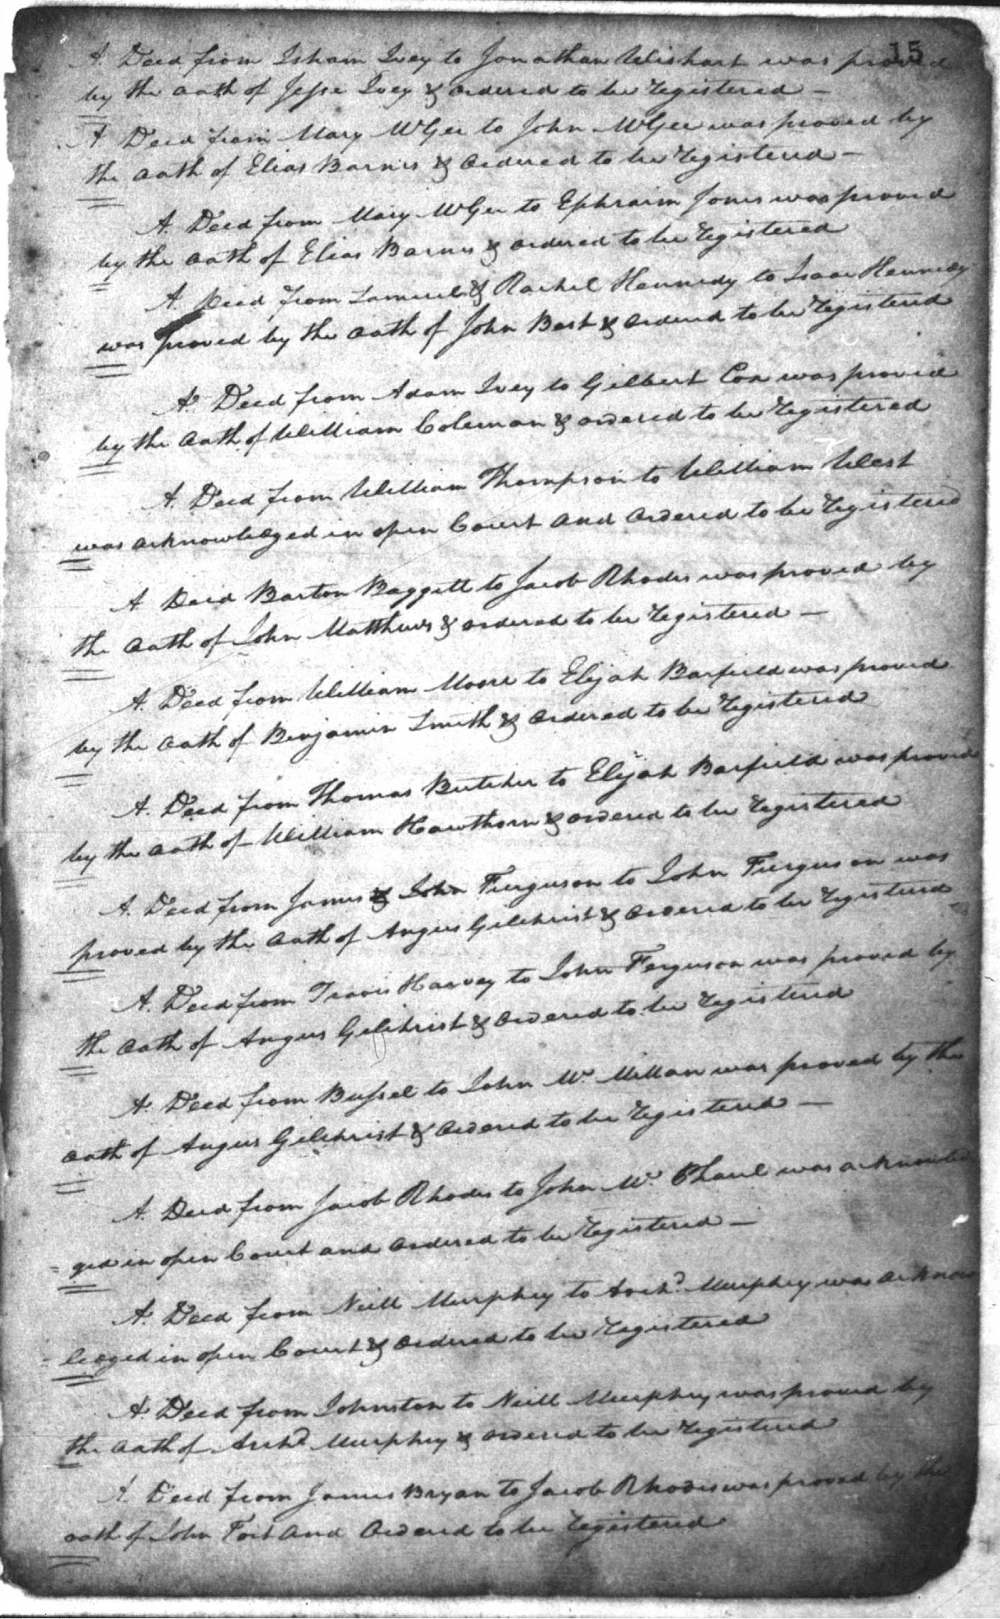 15
A Deed from Isham Ivey to Jonathan Wishart was proved
by the oath of Jesse Ivey & ordered to be registered —
A Deed from Mary McGee to John McGee was proved by
the oath of Elias Barnes & ordered to be registered —
A. Deed from Mary McGee to Ephraim Jones was proved
by the oath of Elias Barnes & ordered to be registered
A. Deed from Samuel & Rachel Kennedy to Isaac Kennedy
was proved by the oath of John Best & ordered to be registered
A. Deed from Adam Ivey to Gilbert Cox was proved
by the oath of William Coleman & ordered to be registered
A. Deed from William Thompson to William West
was acknowledged in open Court and ordered to be registered
A Deed Barton Baggett to Jacob Rhodes was proved by
the oath of John Matthews & ordered to be registered —
A. Deed from William Moore to Elijah Barfield was proved
by the oath of Benjamin Smith & ordered to be registered
A. Deed from Thomas Butcher to Elijah Barfield was proved
by the oath of William Hawthorn & ordered to be registered
A. Deed from James & John Furguson to John Furguson was
proved by the oath of Angus Gilchrist & ordered to be registered
A. Deed from Travis Harvey to John Ferguson was proved by
the oath of Angus Gilchrist & ordered to be registered
A Deed from Bussel to John Mc Millan was proved by the
oath of Angus Gilchrist & ordered to be registered —
A. Deed from Jacob Rhodes to John Mc Phaul was acknowled
= ged in open Court and ordered to be registered —
A. Deed from Neill Murphey to Archd Murphey was acknow
= ledged in open Court & ordered to be registered
A Deed from Johnston to Neill Murphey was proved by
the oath of Archd Murphey & ordered to be registered
A Deed from James Bryan to Jacob Rhodes was proved by the
oath of John Fort and ordered to be registered